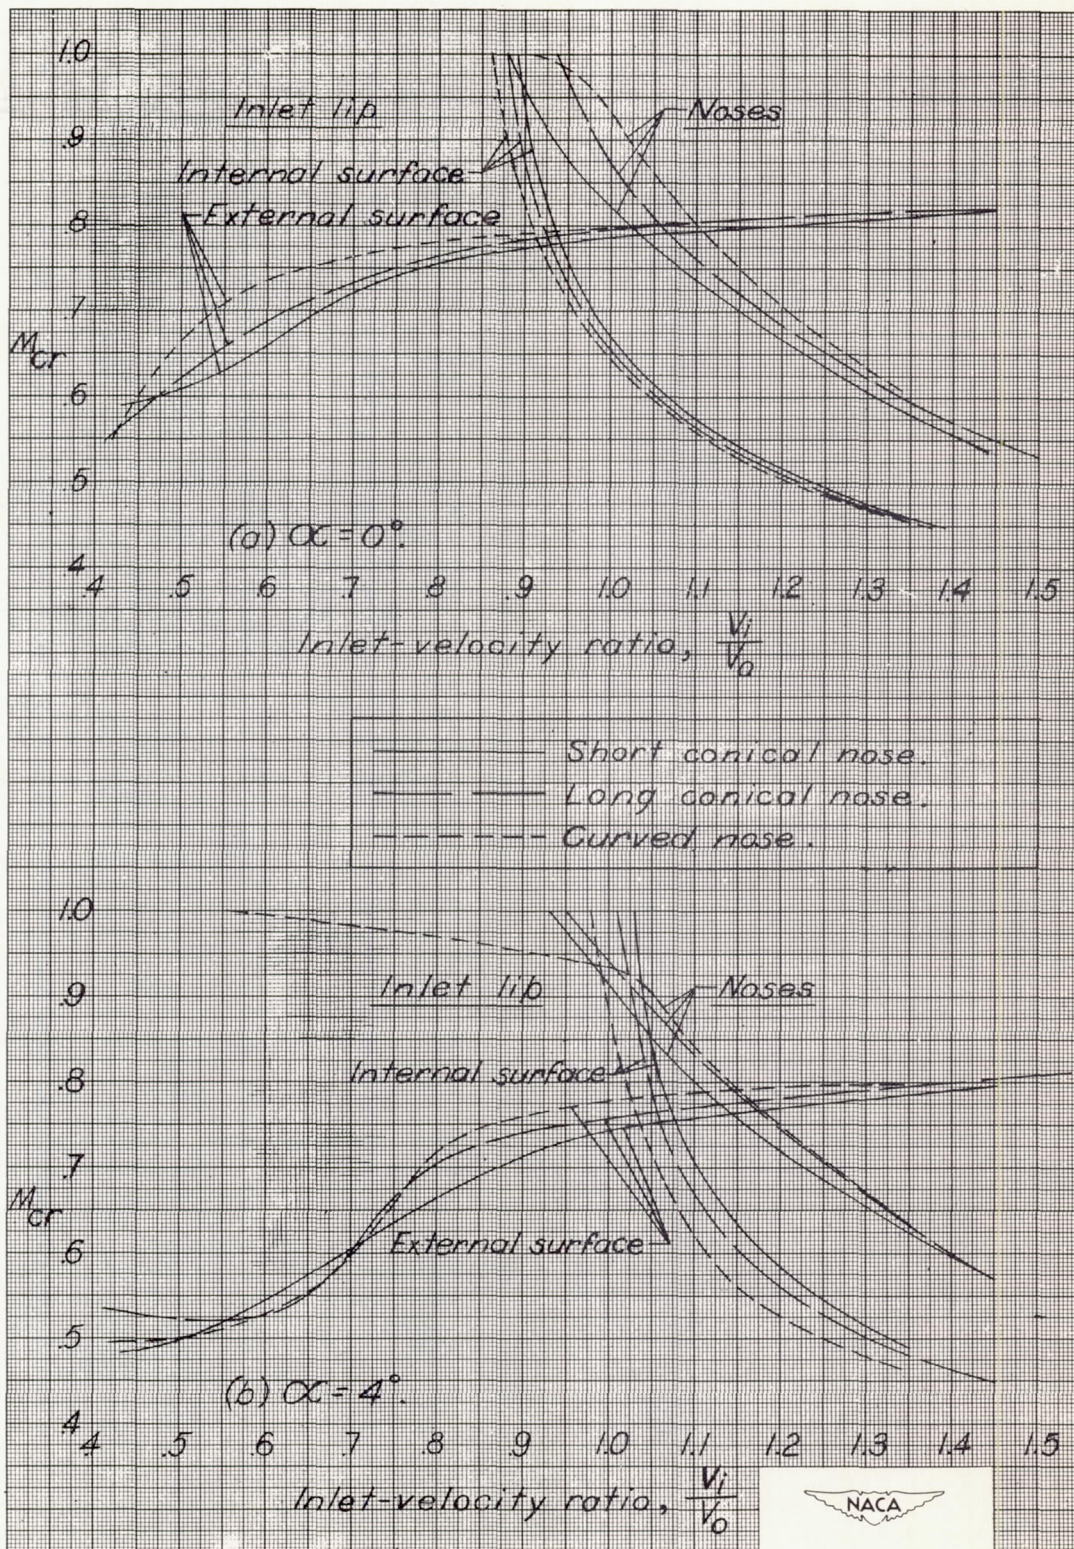 1.0
Inlet lip
Noses
.9
Internal surface
.8
External surface
.7
Mcr
.6
.5
(a) α = 0°.
.4
.4 .5 .6 .7 .8 .9 1.0 1.1 1.2 1.3 1.4 1.5
Inlet-velocity ratio, Vi/Vo
Short conical nose.
Long conical nose.
Curved nose.
1.0
.9
Inlet lip
Noses
.8
Internal surface
.7
Mcr
.6
External surface
.5
(b) α = 4°.
.4
.4 .5 .6 .7 .8 .9 1.0 1.1 1.2 1.3 1.4 1.5
Inlet-velocity ratio, Vi/Vo
NACA